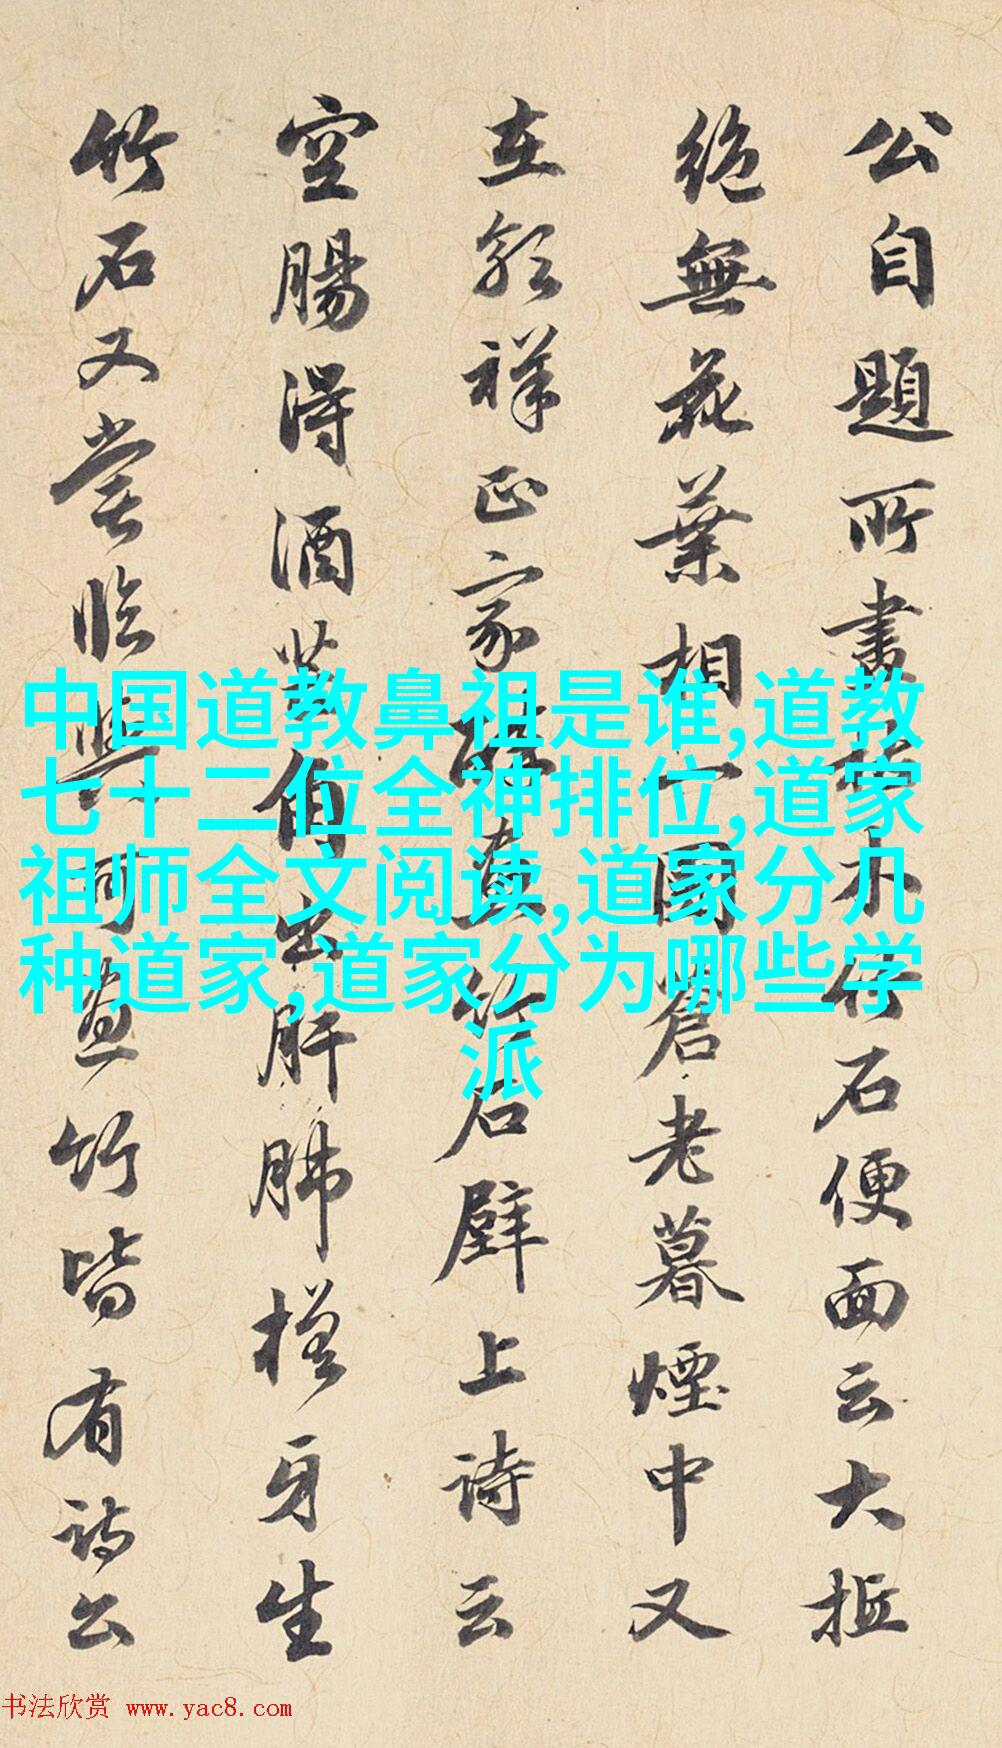 公自題所畫木竹石便面云大抵
絶無花葉相一團蒼老暮煙中又
在郭祥正家醉畫竹石壁上詩云
空腸得酒芒角出肝肺槎牙生
竹石又嘗臨與可畫竹皆有詩公
中国道教鼻祖是谁,道教
七十二位全神排位,道家
祖师全文阅读,道家分几
种道家,道家分为哪些学
派
书法欣赏 www.yac8.com